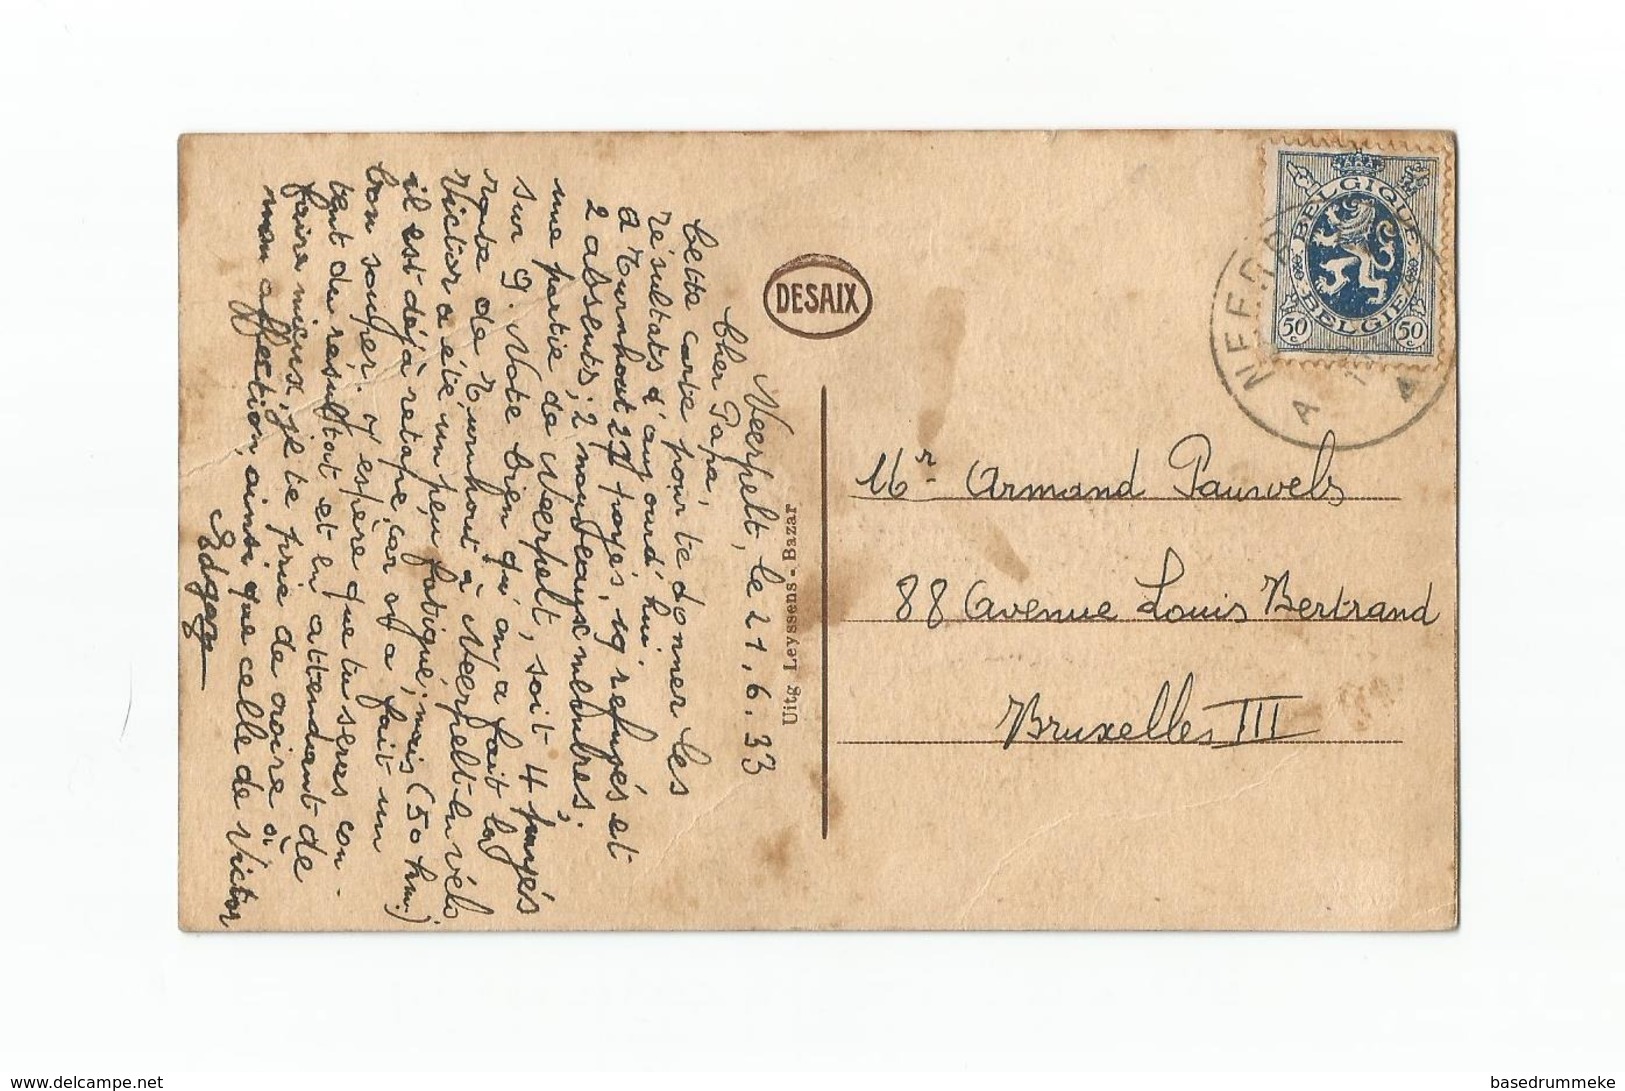 Neerpelt, le 21.6.33
Cher Papa,
Cette carte pour te donner les
résultats d'aujourd'hui:
à Turnhout 27 payés, 19 refusés et
2 absents, 2 nouveaux membres;
une partie de Neerpelt, soit 4 payés
sur 9. Note bien qu'on a fait la
route de Turnhout à Neerpelt en vélo
Victor a été un peu fatigué, mais (50 km.)
il est déjà retapé, car on a fait un
bon souper. J'espère que tu seras con-
tent du résultat et en attendant de
faire mieux, je te prie de croire à
mon affection, ainsi que celle de Victor
Edgar
DESAIX
Uitg Leyssens - Bazar
BELGIQUE
BELGIE
50 c
50 c
NEERP
A
A
Mr Armand Pauwels
88 Avenue Louis Bertrand
Bruxelles III
www.delcampe.net
basedrummeke